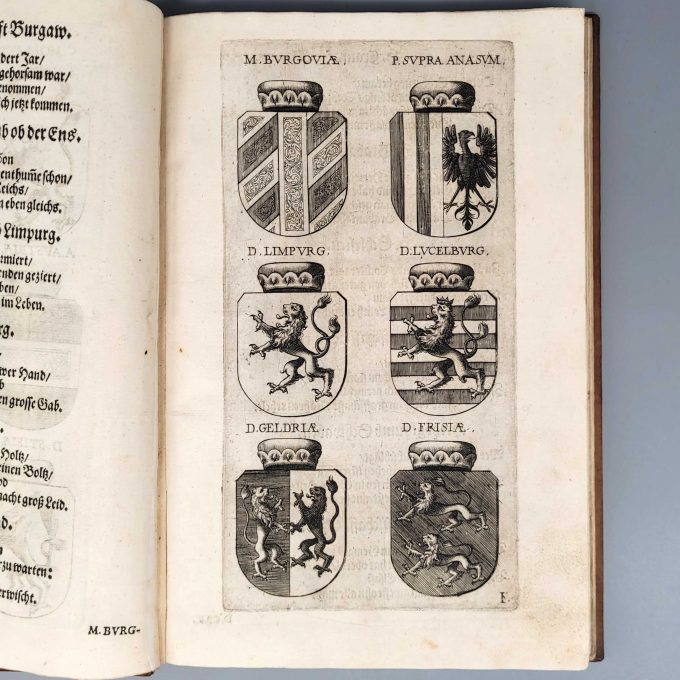 ft Burgaw.
dert Jar/
gehorsam war/
enommen/
sch jetzt kommen.
b ob der Ens.
enthum̃e schon/
Leichs/
n eben gleichs.
Limpurg.
rmiert/
nden geziert/
ben/
im Leben.
rg.
wer Hand/
b
en grosse Gab.
Holtz/
einen Boltz/
od
macht groß Leid.
nd.
n
rzu warten:
erwischt.
M. BVRG-
M. BVRGOVIÆ
P. SVPRA ANASVM.
D. LIMPVRG.
D. LVCELBVRG.
D. GELDRIÆ.
D. FRISIÆ.
F.